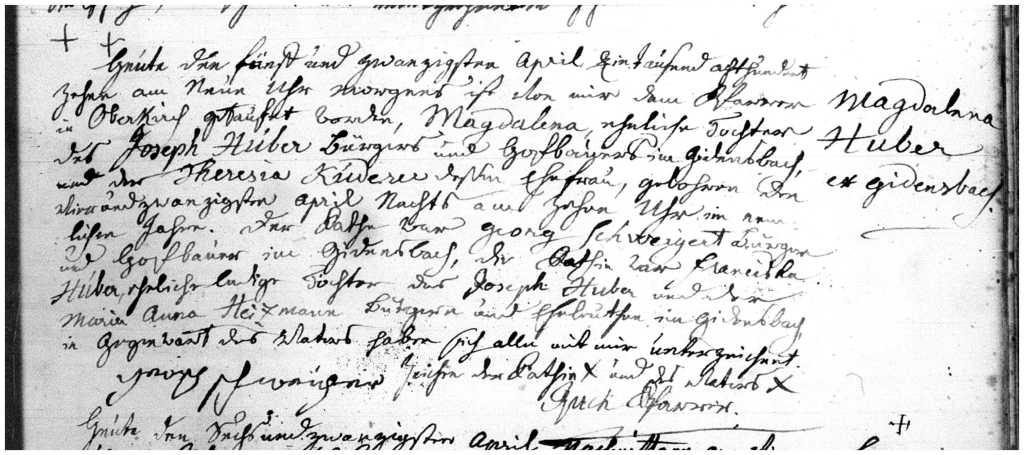 Heute den fünf und zwanzigsten April Eintausend achthundert
zehen am Neun Uhr Morgens ist von mir dem Pfarrer
in Oberkirch getauft worden, Magdalena, eheliche Tochter
des Joseph Huber Bürgers und Hofbauers im Gidensbach,
und der Theresia Küderer dessen Ehefrau, gebohren den
vier und zwanzigsten April Nachts am zehen Uhr im nem
lichen Jahre. Der Pathe war Georg Schweigert Bürger
und Hofbauer im Gidensbach, die Pathin war Franciska
Huber, eheliche ledige Tochter des Joseph Huber und der
Maria Anna Heizmann Bürgern und Eheleuthen im Gidensbach,
in Gegenwart des Vaters haben sich alle mit mir unterzeichnet.
Zeichen der Pathin X und des Vaters X
Pfarrer.
Magdalena
Huber
ex Gidensbach.
Heute den Sechs und zwanzigsten April